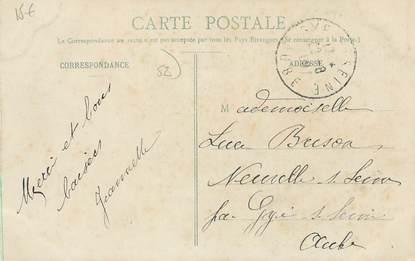 15€
CARTE POSTALE
La Correspondance au recto n'est pas acceptée par tous les Pays Étrangers (Se renseigner à la Poste.)
CORRESPONDANCE
ADRESSE
52
SEINE
Merci et bons
baisers
Jeannette
Mademoiselle
Luce Brisson
Neuville s. Seine
par Gyé s. Seine
Aube